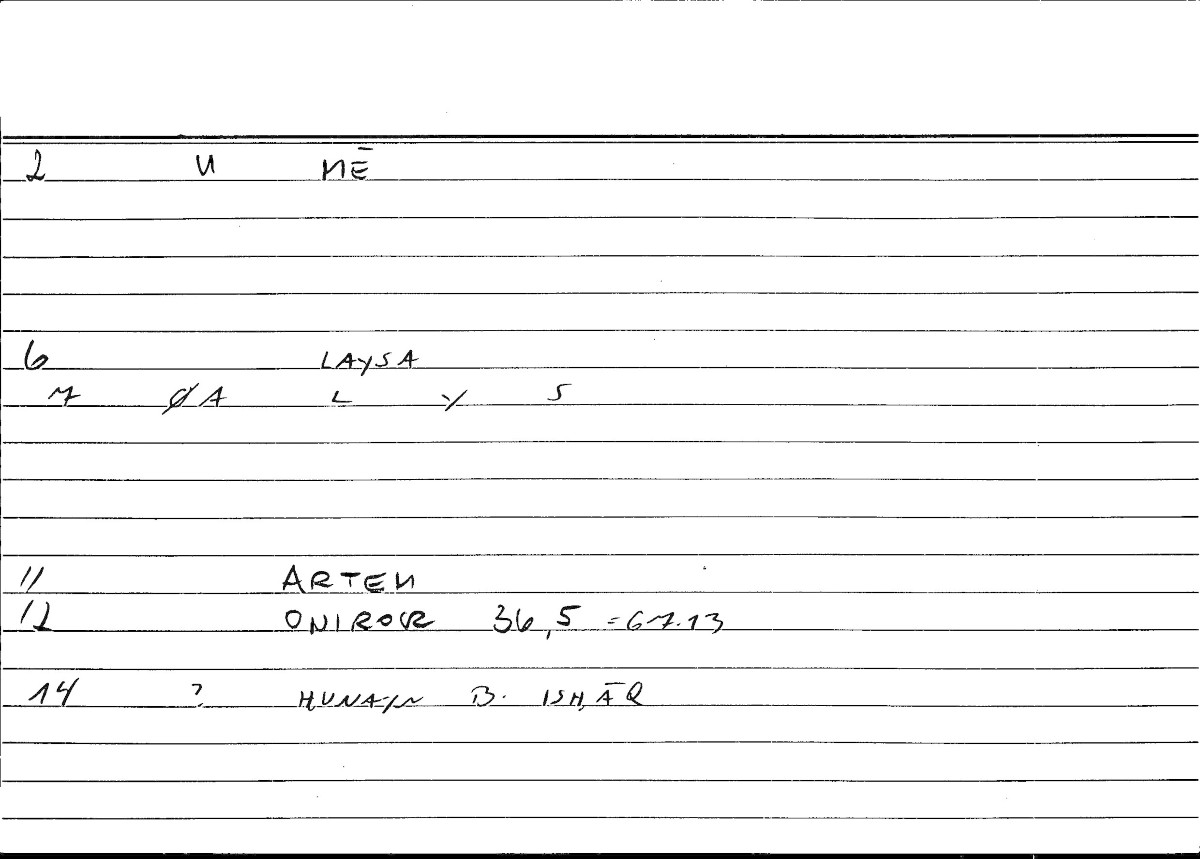 2 M MĒ
6 LAYSA
7 ØA L Y S
11 ARTEM
12 ONIROCR 36,5 =67.13
14 ? ḤUNAYN B. ISḤĀQ